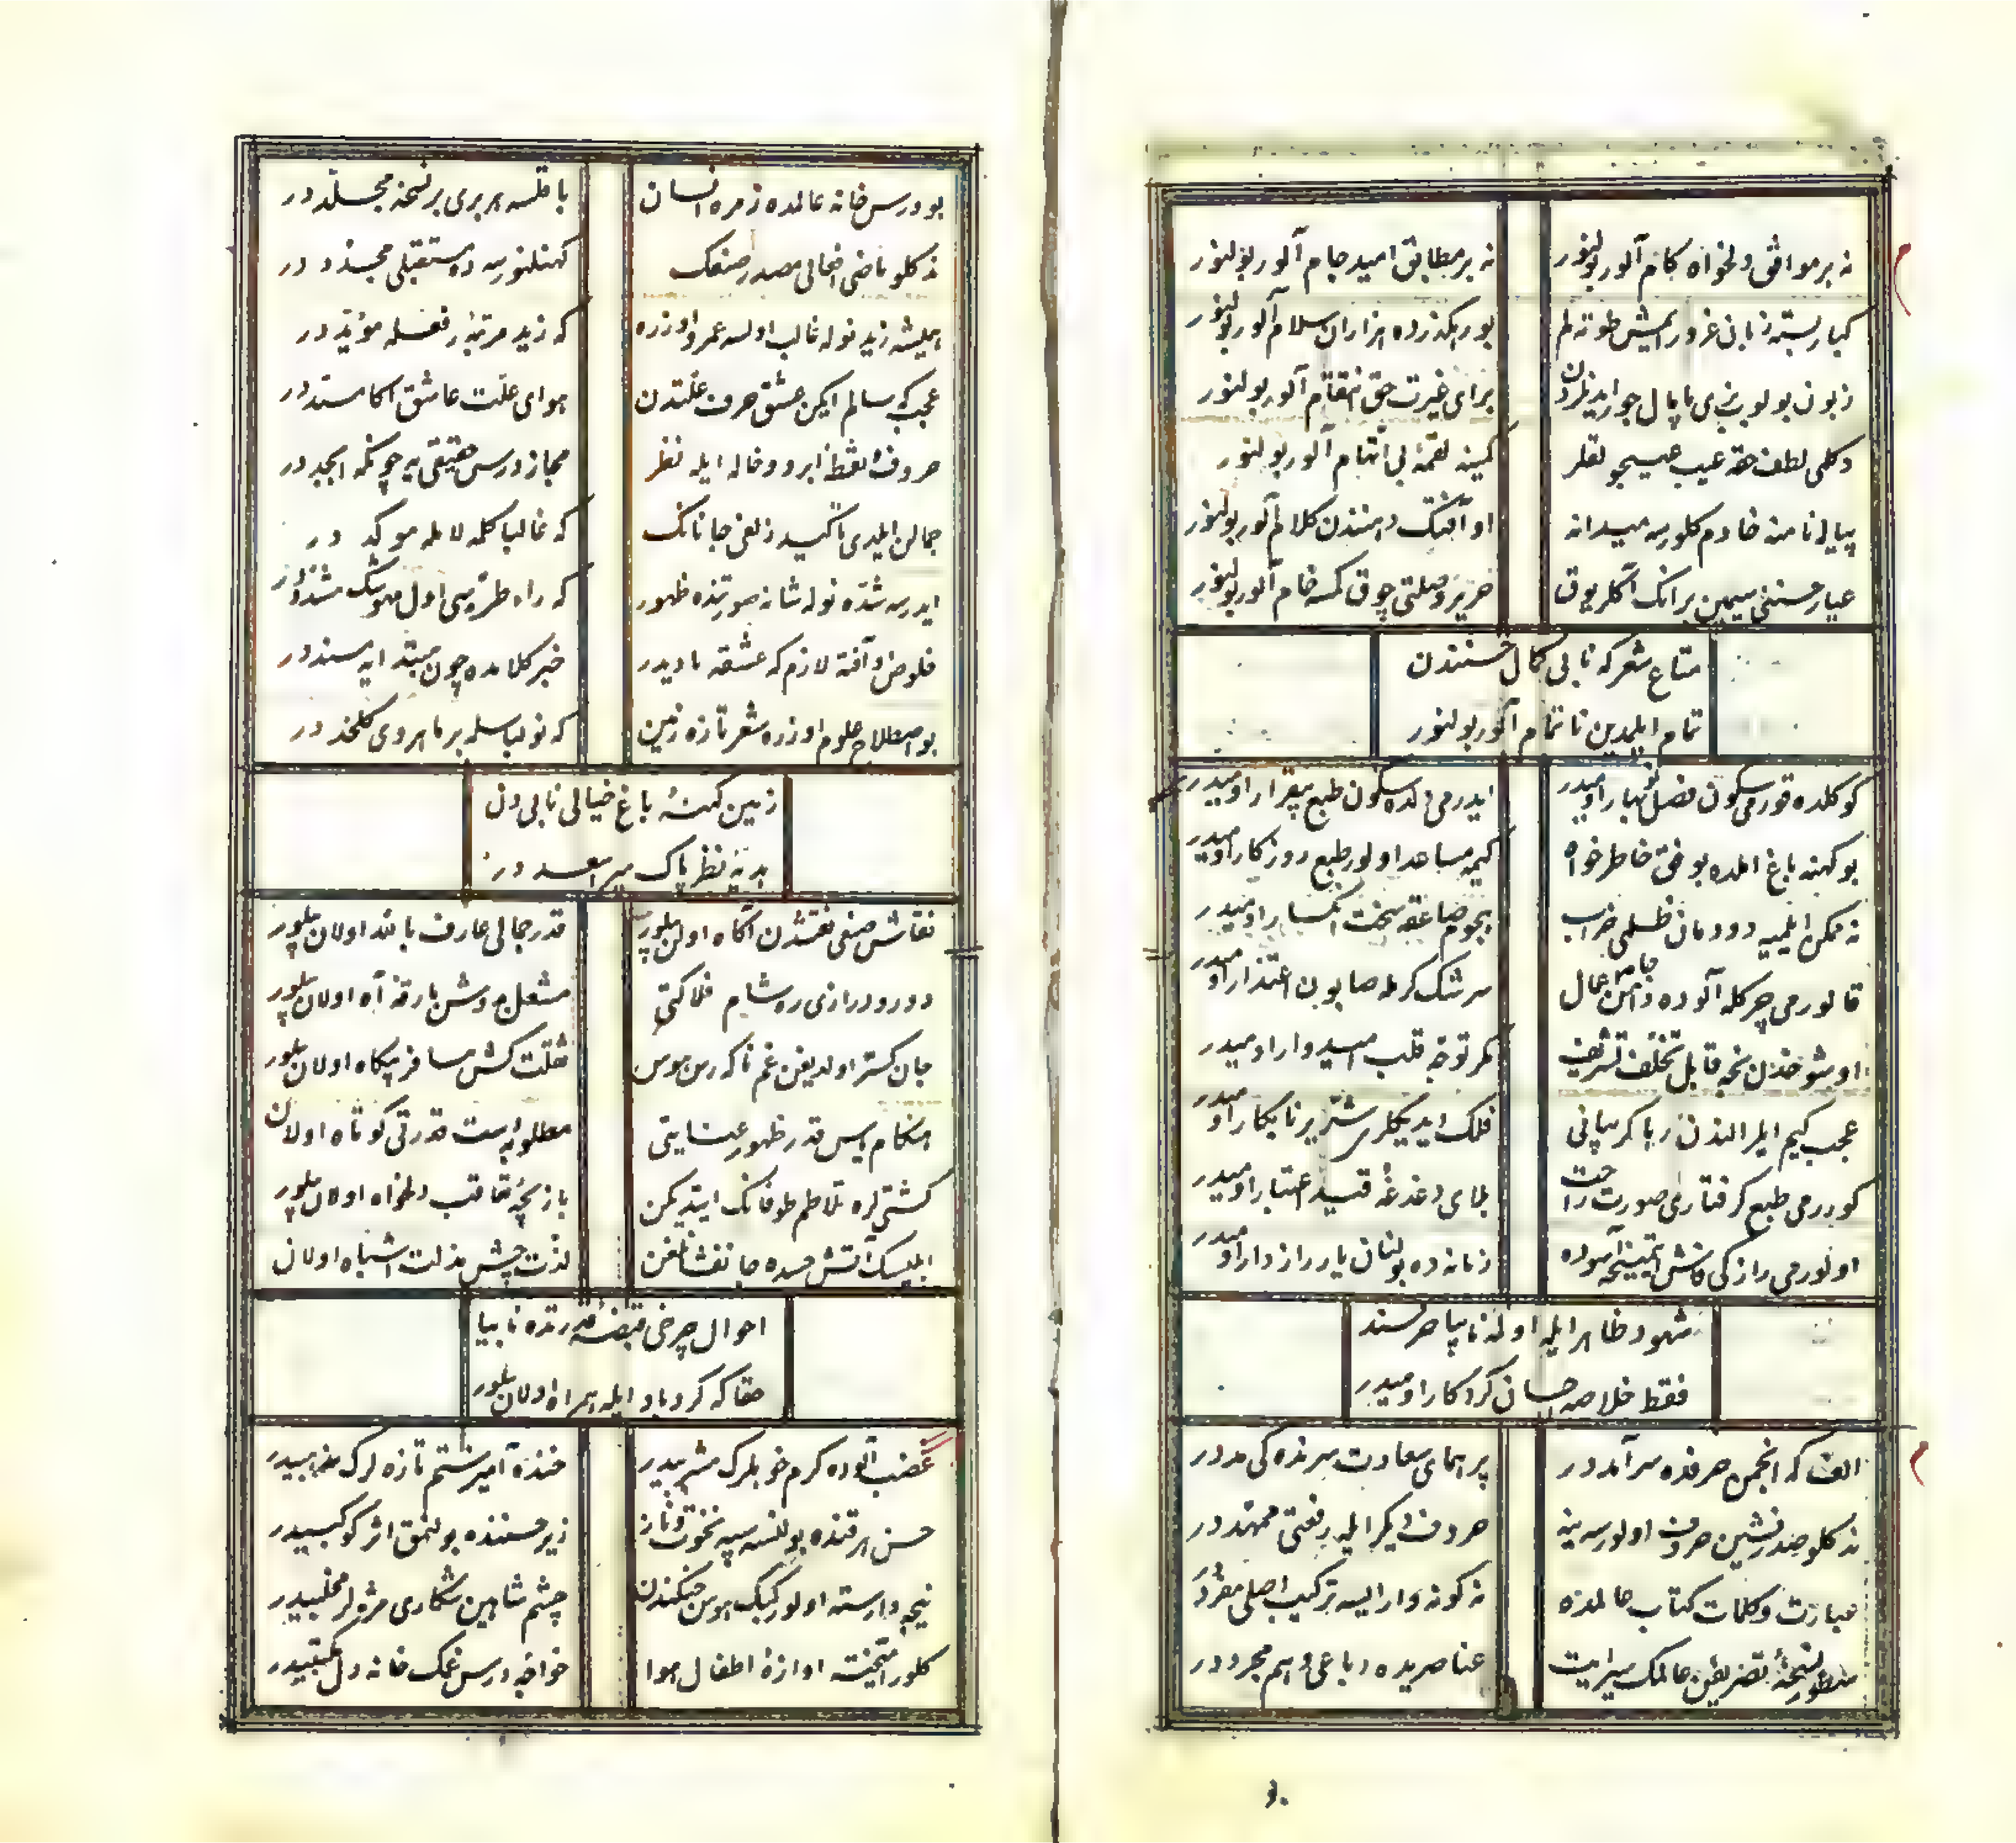 نه بر موافق دلخواه کام آلور بولنور
نه بر مطابق امید جام آلور بولنور
کبار بسته زبان غرور ایمش طوته لم
بو رهکذرده هزاران سلام آلور بولنور
زبون بولوب بزی پامال جور ایدنلردن
برای غیرت حق انتقام آلور بولنور
دکلمی لطف حقه عیب عیبجو لقلر
کمینه لقمهٔ بی اتهام آلور بولنور
پیاله نامنه خادم کلورسه میدانه
او آفتک دهنندن کلام آلور بولنور
عیار حسننی سیمین بر انک آکلر یوق
خریر وصلتی چوق کسه خام آلور بولنور
متاع شعر که نابی کمال حسنندن
تمام ایلمدین ناتمام آلور بولنور
کوکلده قورمی سکون فصل نوبهار اومیدر
ایدرمی لده سکون طبع بیقرار اومیدر
بو کهنه باغ امله بو فق خاطرخواه
کیمه مساعد اولور طبع روزکار اومیدر
نه ممکن ایلمیه دودمان ظلمی خراب
هجوم صاعقهٔ سخت انکسار اومیدر
قالورمی چرکله آلوده دامن جامهٔ عمال
سرشک کرمله صابون اعتذار اومیدر
او شوخدن نجه قابل تخلف تشریف
مکر توجه قلب امیدوار اومیدر
عجب کیم ایلر الندن رها کریبانی
فلک ایدیکلری شریر نابکار اومیدر
کوررمی طبع کرفتاری صورت راحت
بلای دغدغهٔ قید اعتبار اومیدر
اولورمی رازکی فاش ایتمینجه آسوده
زمانه ده بولنان یار رازدار اومیدر
شهود ظاهر ایله اولمه نابیا خرسند
فقط خلاصهٔ احسان کردکار اومیدر
الف که انجمن حرفده سرآمددر
پر همای سعادت سرنده کی مددر
نه کلو صدرنشین حروف اولورسه ینه
حروف دیکر ایله رفعتی ممهددر
عبارت و کلمات کتاب عالمده
نه کونه وار ایسه ترکیب اصلی مفرددر
سطور نسخهٔ تصریف عالمک سیرایت
عناصریده رباعی و هم مجرددر
بو درسخانهٔ عالمده زمرهٔ انسان
باقلسه هر بری بر نسخهٔ مجلددر
نه کلو ماضی افعالی مصدر صنعک
کهنلنورسه ده مستقبلی مجدددر
همیشه زید نوله غالب اولسه عمرو اوزره
که زید مرتبهٔ رفعله مؤیددر
عجب که سالم ایکن عشق حرف علتدن
هوای علت عاشق اکا مسنددر
حروف و نقطهٔ ابرو و خاله ایله نظر
مجاز درس حقیقی یه چونکه ابجددر
جمالن ایلدی تأکید زلفی جانانک
که غالبا کله لامله موکددر
ایدرسه شده نوله شانه صورتنده ظهور
که راه طره سی اول مهوشک مشدددر
خلوص آفته لازم که عشقه یا دیدر
خبر کلامده چون مبتدایه مسنددر
بو اصطلاح علوم اوزره شعر تازه زمین
که نو لباسله بر ماهروی کلخددر
زمین کهنهٔ باغ خیالی نابی ون
هدیهٔ نظر پاک میر اسعددر
نقاش صنعی نقشدن آگاه اولن بیلور
قدر جمالی عارف بالله اولان بیلور
دور و درازی ره شام فلاکتی
مشعل فروش بارقهٔ آه اولان بیلور
جان کستر اولدیغن غم ناکه رس موس
ثقلت کش مسافر بیکاه اولان بیلور
هنکام یأس قدر ظهور عنایتی
مطلوبه دست قدرتی کوتاه اولان
کشتی لره تلاطم طوفانک ایتدیکن
بازیچهٔ تعاقب دلخواه اولان بیلور
ابلیسک آتش حسده جانفشانلغن
لذت چش مذلت اشباه اولان
احوال چرخی قبضهٔ قدرتده نابیا
حقا که کردباد ایله همراه اولان بیلور
غضب آلوده کرم خوبلرک مشربیدر
خنده آمیز ستم تازه لرک مذهبیدر
حسن هر قنده بولنسه سپه نخوت و ناز
زیر حسننده بولنمق اثر کوکبیدر
نیجه وارسته اولور کبک هوس چنکندن
چشم شاهین شکاری مژه لر مخلبیدر
کلور امتحنه اوازهٔ اطفال هوا
خواجهٔ درس غمک خانهٔ دل مکتبیدر